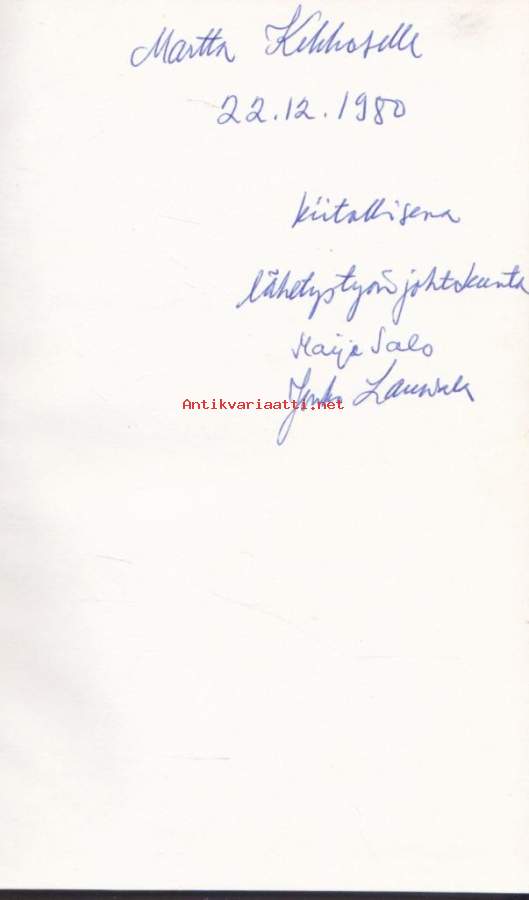 Martta Kekkoselle
22.12.1980
kiitollisena
lähetystyön johtokunta
Maija Salo
Antikvariaatti.net